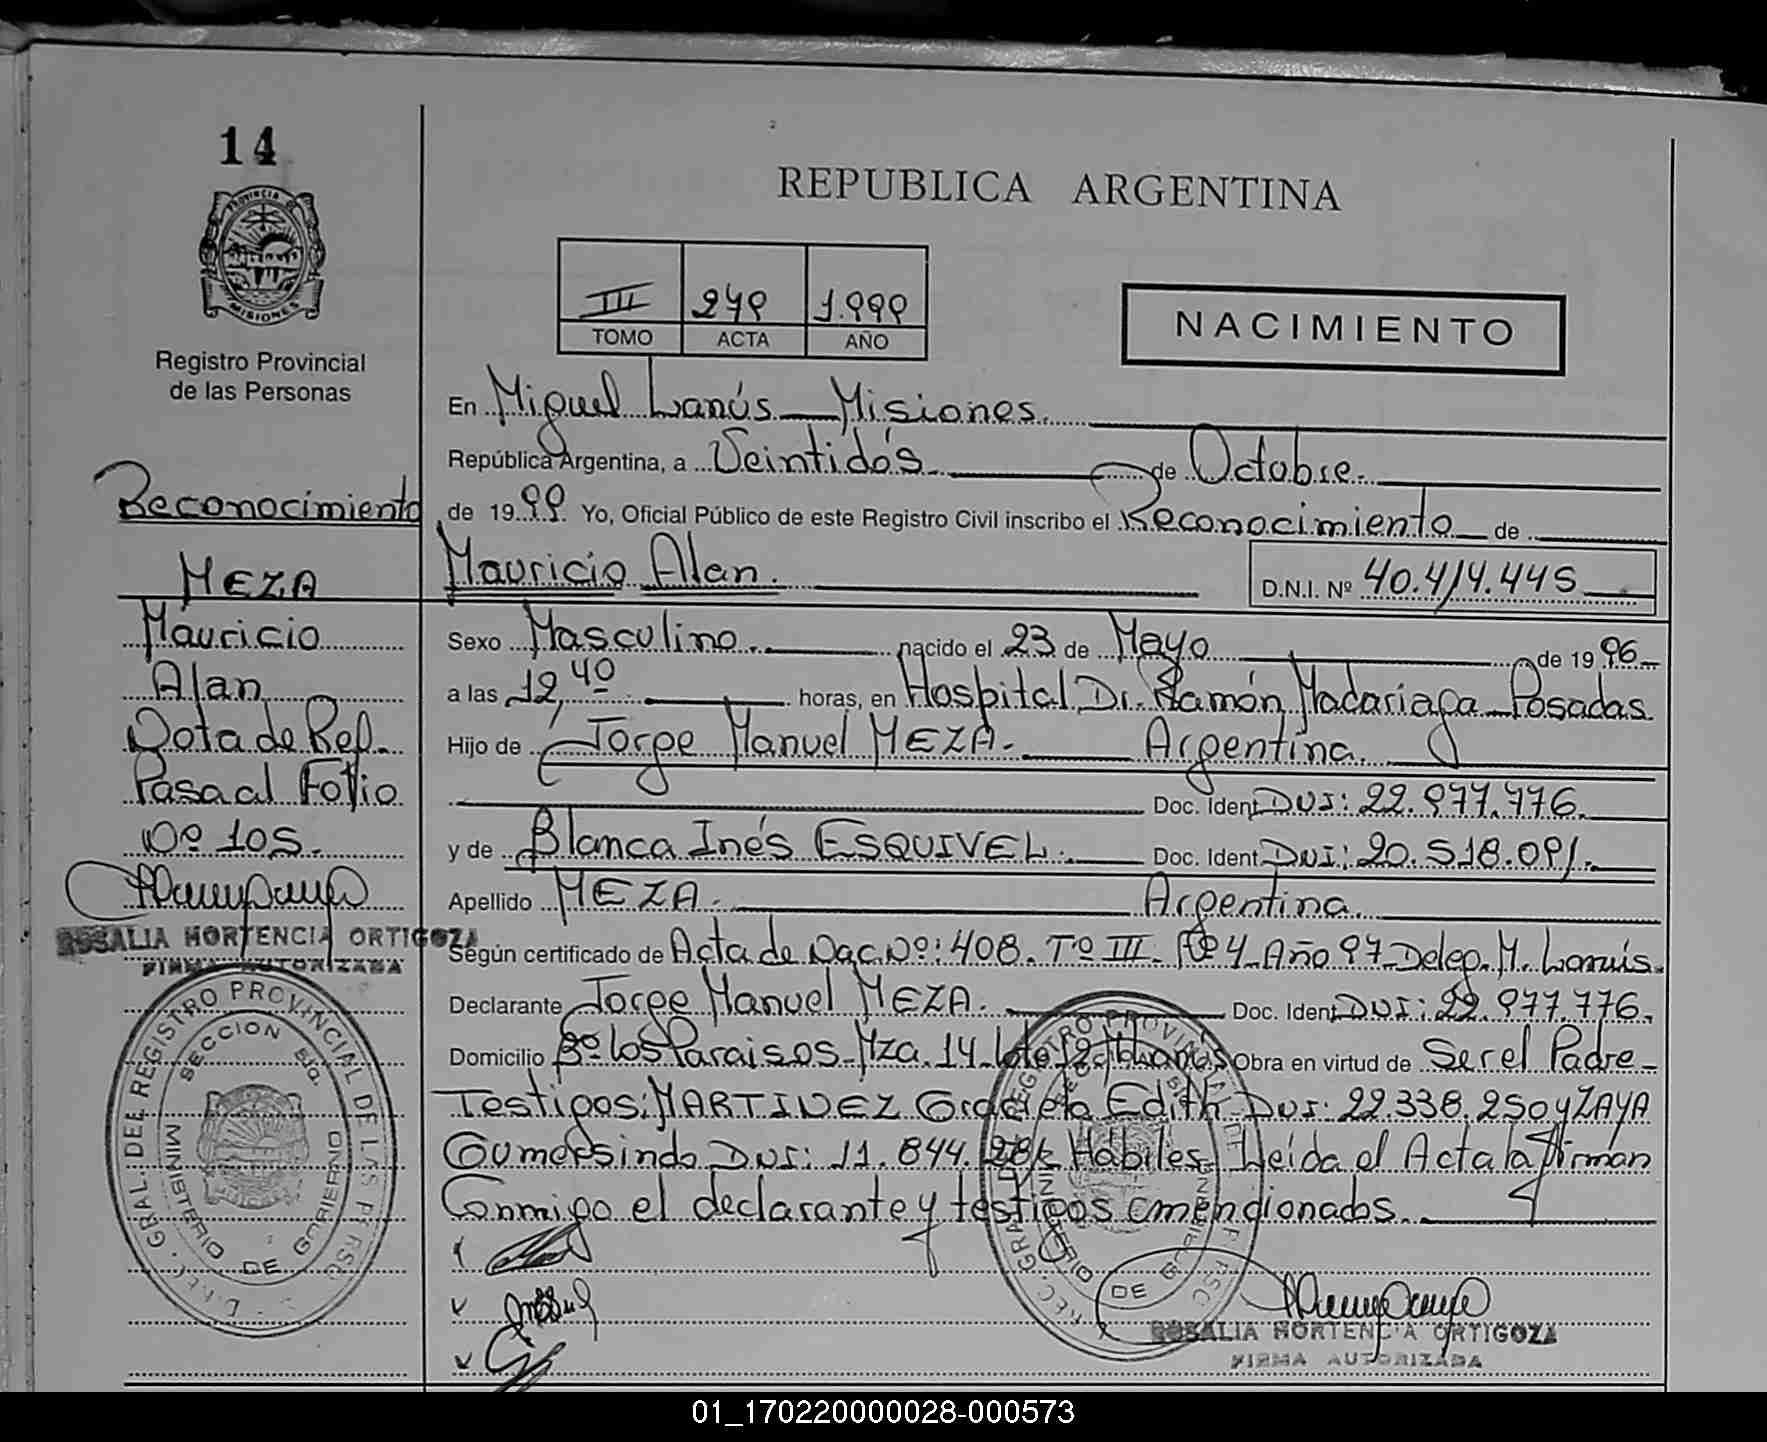 14
PROVINCIA DE
MISIONES
Registro Provincial
de las Personas
REPUBLICA ARGENTINA
III 279 1.999
TOMO ACTA AÑO
NACIMIENTO
En Miguel Lanús - Misiones.
República Argentina, a Veintidós de Octubre.
de 1999. Yo, Oficial Público de este Registro Civil inscribo el Reconocimiento de
Mauricio Alan. D.N.I. Nº 40.414.445
Sexo Masculino. nacido el 23 de Mayo de 1996
a las 12,40 horas, en Hospital Dr. Ramón Madariaga - Posadas.
Hijo de Jorge Manuel MEZA. Argentina.
Doc. Ident DNI: 22.977.776.
y de Blanca Inés ESQUIVEL. Doc. Ident. DNI: 20.518.091.
Apellido MEZA. Argentina.
Según certificado de Acta de Nac. Nº: 408. Tº III. Fº 4 Año 97 Deleg. M. Lanús.
Declarante Jorge Manuel MEZA. Doc. Ident DNI: 22.977.776.
Domicilio Bº los Paraisos - Mza. 14 - lote 12 Lanús Obra en virtud de Ser el Padre -
Testigos: MARTINEZ Graciela Edith - DNI: 22.338.250 y ZAYA
Gumersindo DNI: 11.844. Hábiles. Leída el Acta la firman
Conmigo el declarante y testigos mencionados.
ROSALIA HORTENCIA ORTIGOZA
FIRMA AUTORIZADA
Reconocimiento
MEZA
Mauricio
Alan
Nota de Ref.
Pasa al Folio
Nº 105.
ROSALIA HORTENCIA ORTIGOZA
FIRMA AUTORIZADA
GRAL. DEL REGISTRO PROVINCIAL DE LAS PERSO
SECCION
MINISTERIO DE GOBIERNO
01_170220000028-000573